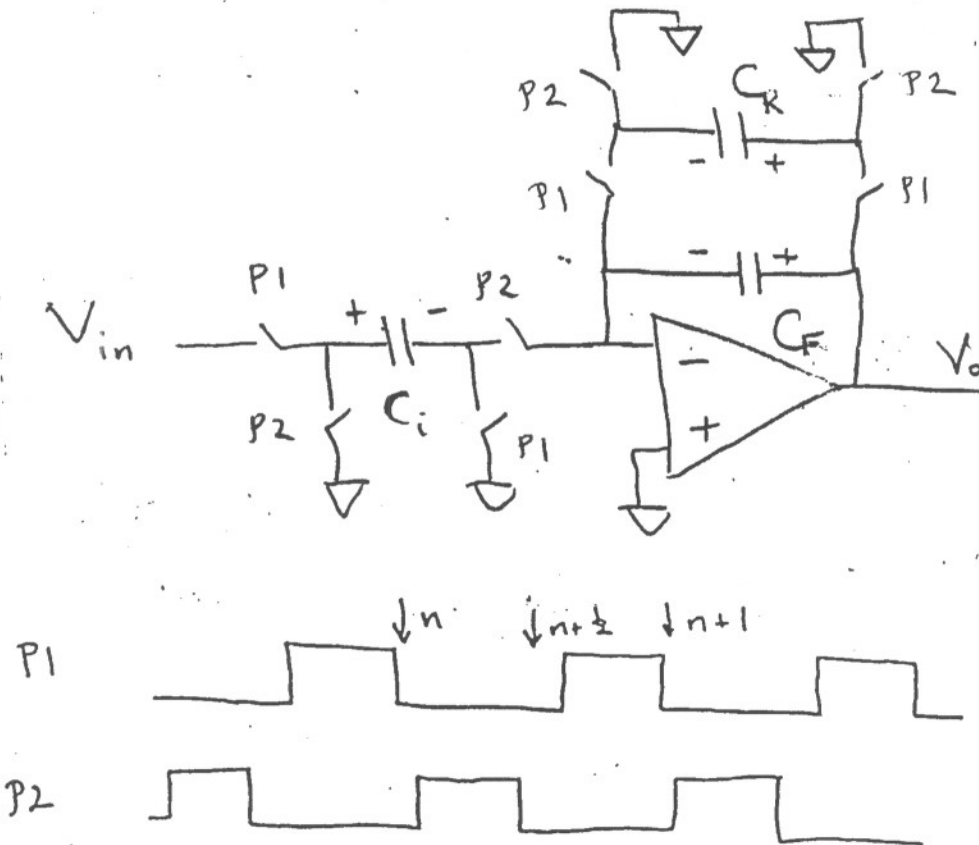 P2
C_R
P2
- +
P1
P1
- +
P1
+ -
P2
C_F
V_in
-
V_o
P2
C_i
P1
+
↓n ↓n+½ ↓n+1
P1
P2